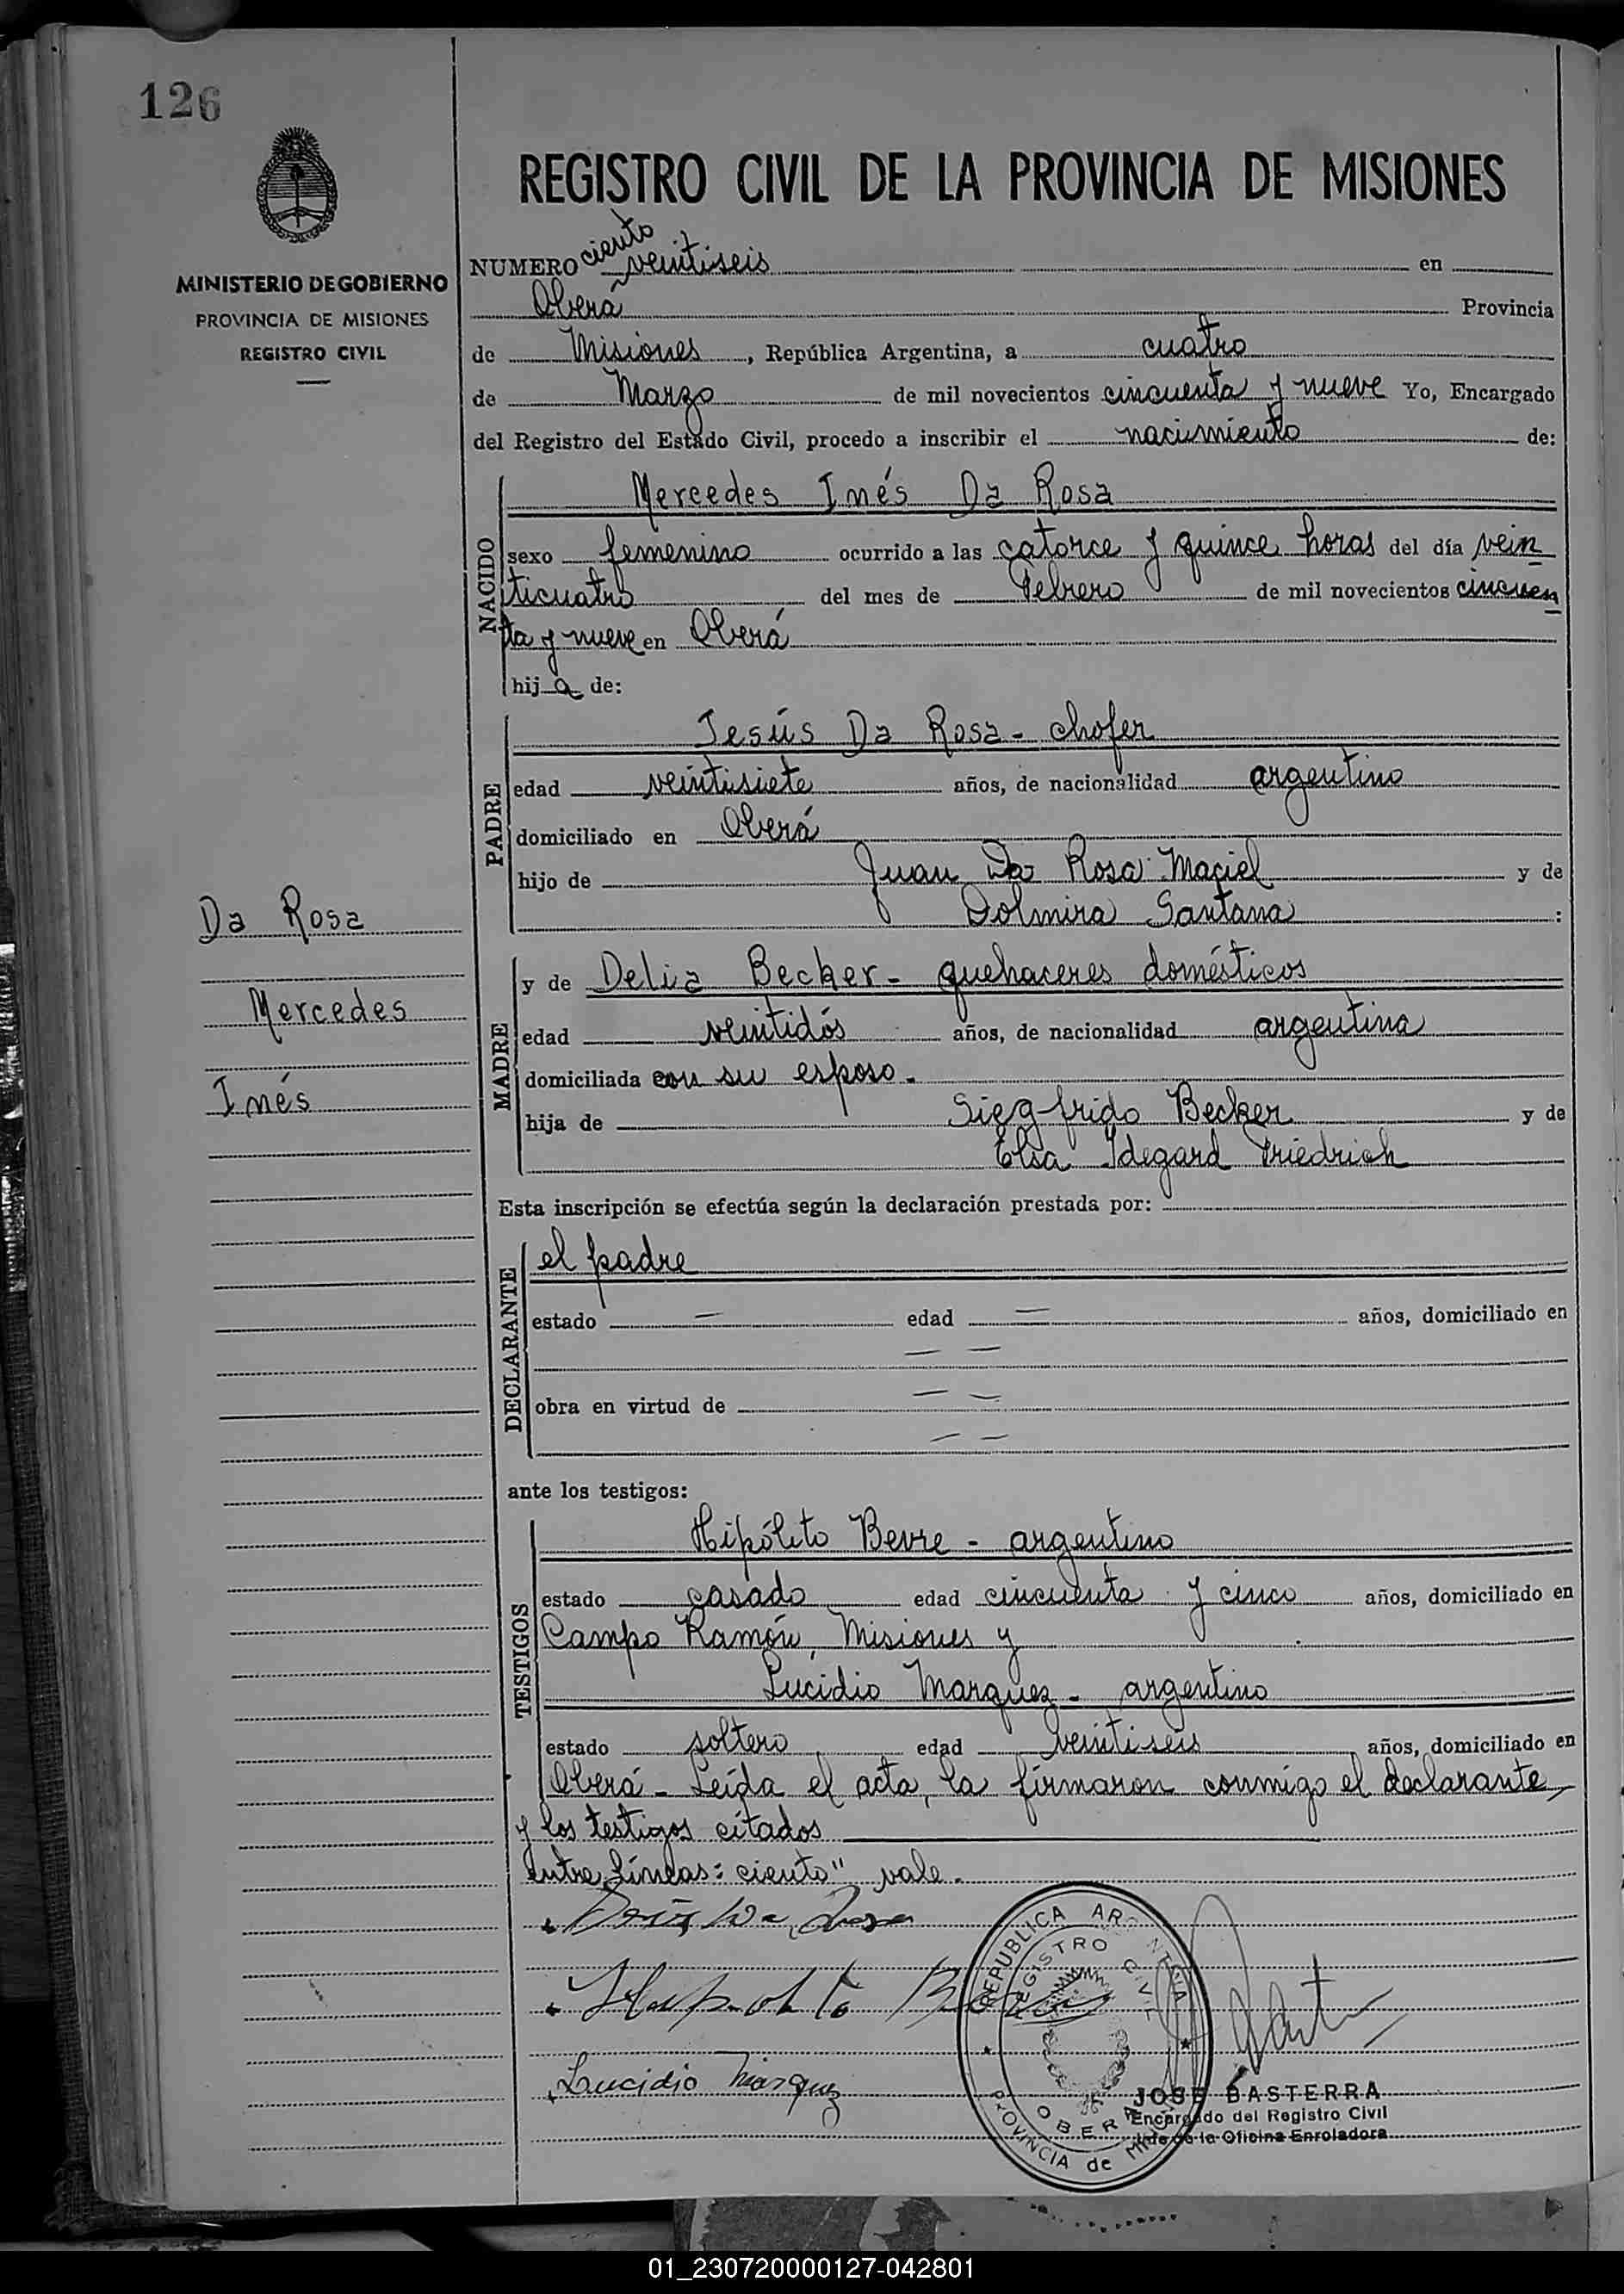 126
REGISTRO CIVIL DE LA PROVINCIA DE MISIONES
MINISTERIO DE GOBIERNO
PROVINCIA DE MISIONES
REGISTRO CIVIL
ciento
NUMERO veintiseis en
Oberá Provincia
de Misiones, República Argentina, a cuatro
de Marzo de mil novecientos cincuenta y nueve Yo, Encargado
del Registro del Estado Civil, procedo a inscribir el nacimiento de:
NACIDO
Mercedes Inés Da Rosa
sexo femenino ocurrido a las catorce y quince horas del día vein
ticuatro del mes de Febrero de mil novecientos cincuen
ta y nueve en Oberá
hija de:
PADRE
Jesús Da Rosa - chofer
edad veintisiete años, de nacionalidad argentino
domiciliado en Oberá
hijo de Juan Da Rosa Maciel y de
Dolmira Santana :
MADRE
y de Delia Becker - quehaceres domésticos
edad veintidós años, de nacionalidad argentina
domiciliada con su esposo.
hija de Siegfrido Becker y de
Elsa Idegard Friedrich
Da Rosa
Mercedes
Inés
Esta inscripción se efectúa según la declaración prestada por:
DECLARANTE
el padre
estado — edad = años, domiciliado en
— —
obra en virtud de — —
— —
ante los testigos:
TESTIGOS
Hipólito Bevre - argentino
estado casado edad cincuenta y cinco años, domiciliado en
Campo Ramón, Misiones y
Lucidio Marquez - argentino
estado soltero edad veintiseis años, domiciliado en
Oberá - Leída el acta, la firmaron conmigo el declarante,
y los testigos citados
entre líneas: ciento" vale.
Lucidio Marquez
REPUBLICA ARGENTINA
REGISTRO CIVIL
OBERA
PROVINCIA de MISIONES
JOSE BASTERRA
Encargado del Registro Civil
Jefe de la Oficina Enroladora
01_230720000127-042801